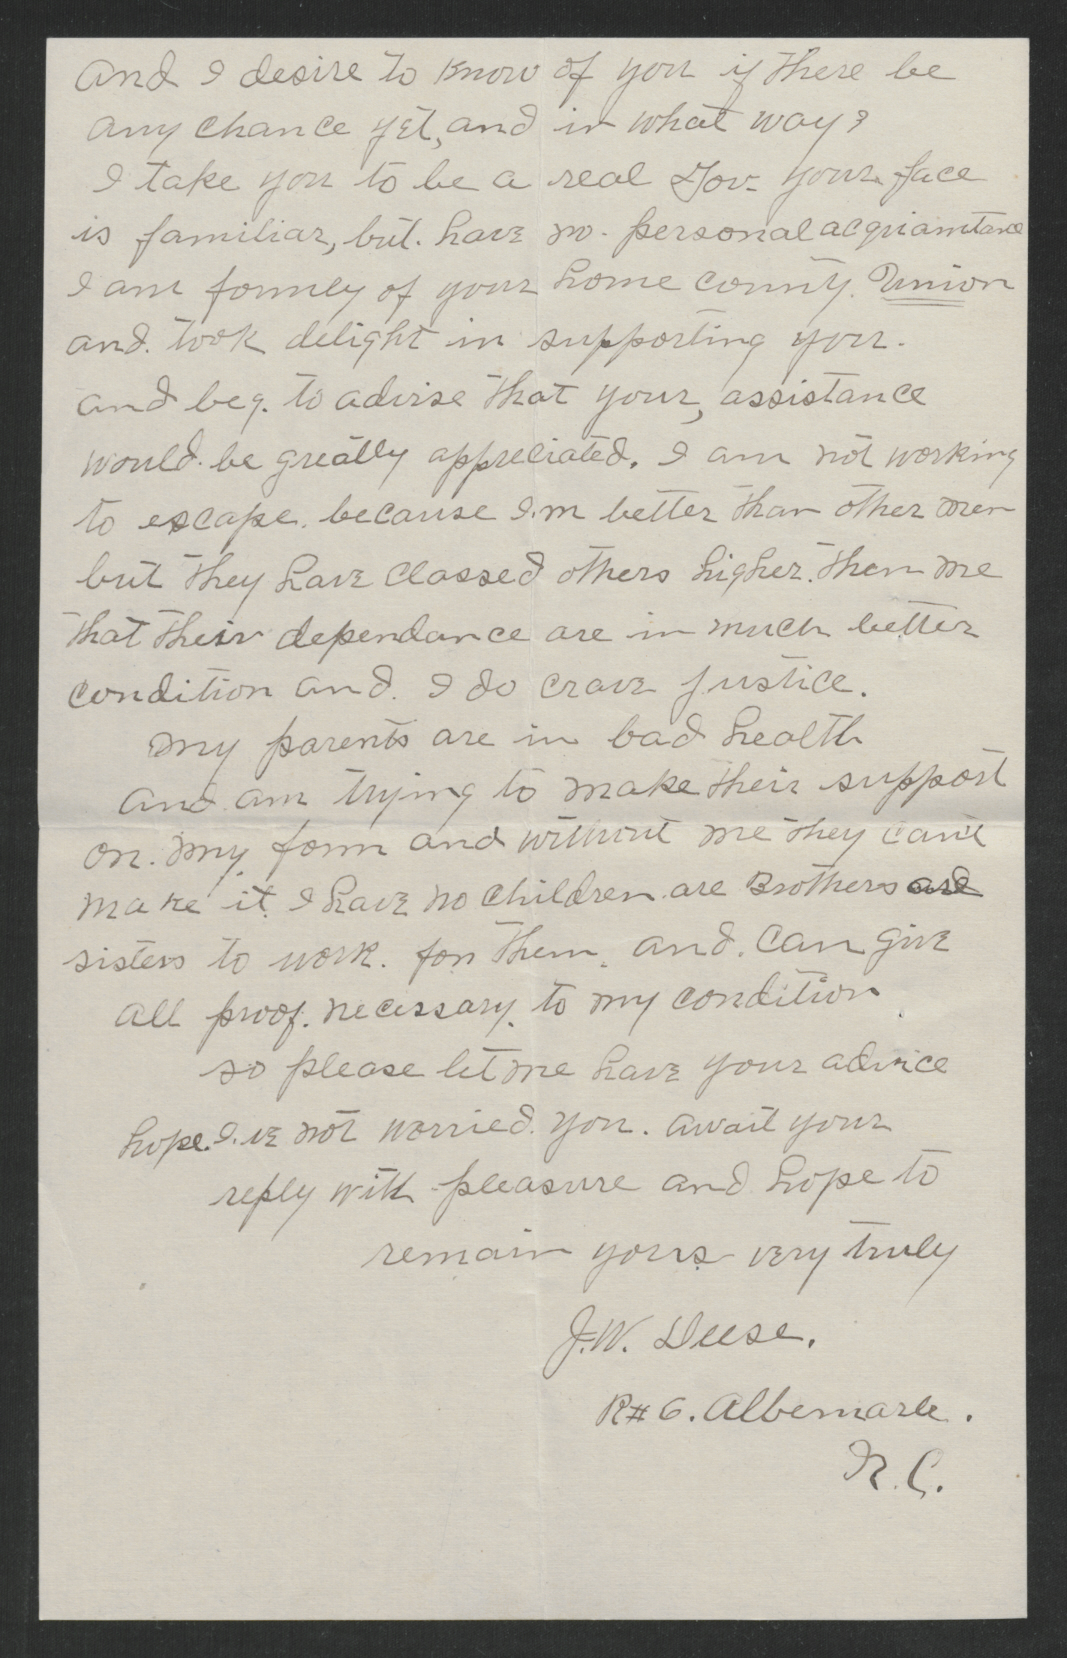 and I desire to know of you if there be
any chance yet, and in what way?
I take you to be a real Gov- your face
is familiar, but. have no. personal acquiamtance
I am formley of your home county. Union
and. took delight in supporting you.
and beg. to advise that your, assistance
would. be greatly appreciated. I am not working
to escape. because I.m better than other men
but they have classed others higher. then me
that their dependance are in much better
condition and. I do crave justice.
my parents are in bad health
and am trying to make their support
on. my farm and without me they can't
make it. I have no children are Brothers and
sisters to work. for them. and. can give
all proof. necessary. to my condition
so please let me have your advice
hope. I.ve not worried. you. await your
reply with pleasure and hope to
remain yours very truly
J.W. Deese.
R# 6. Albemarle.
N.C.